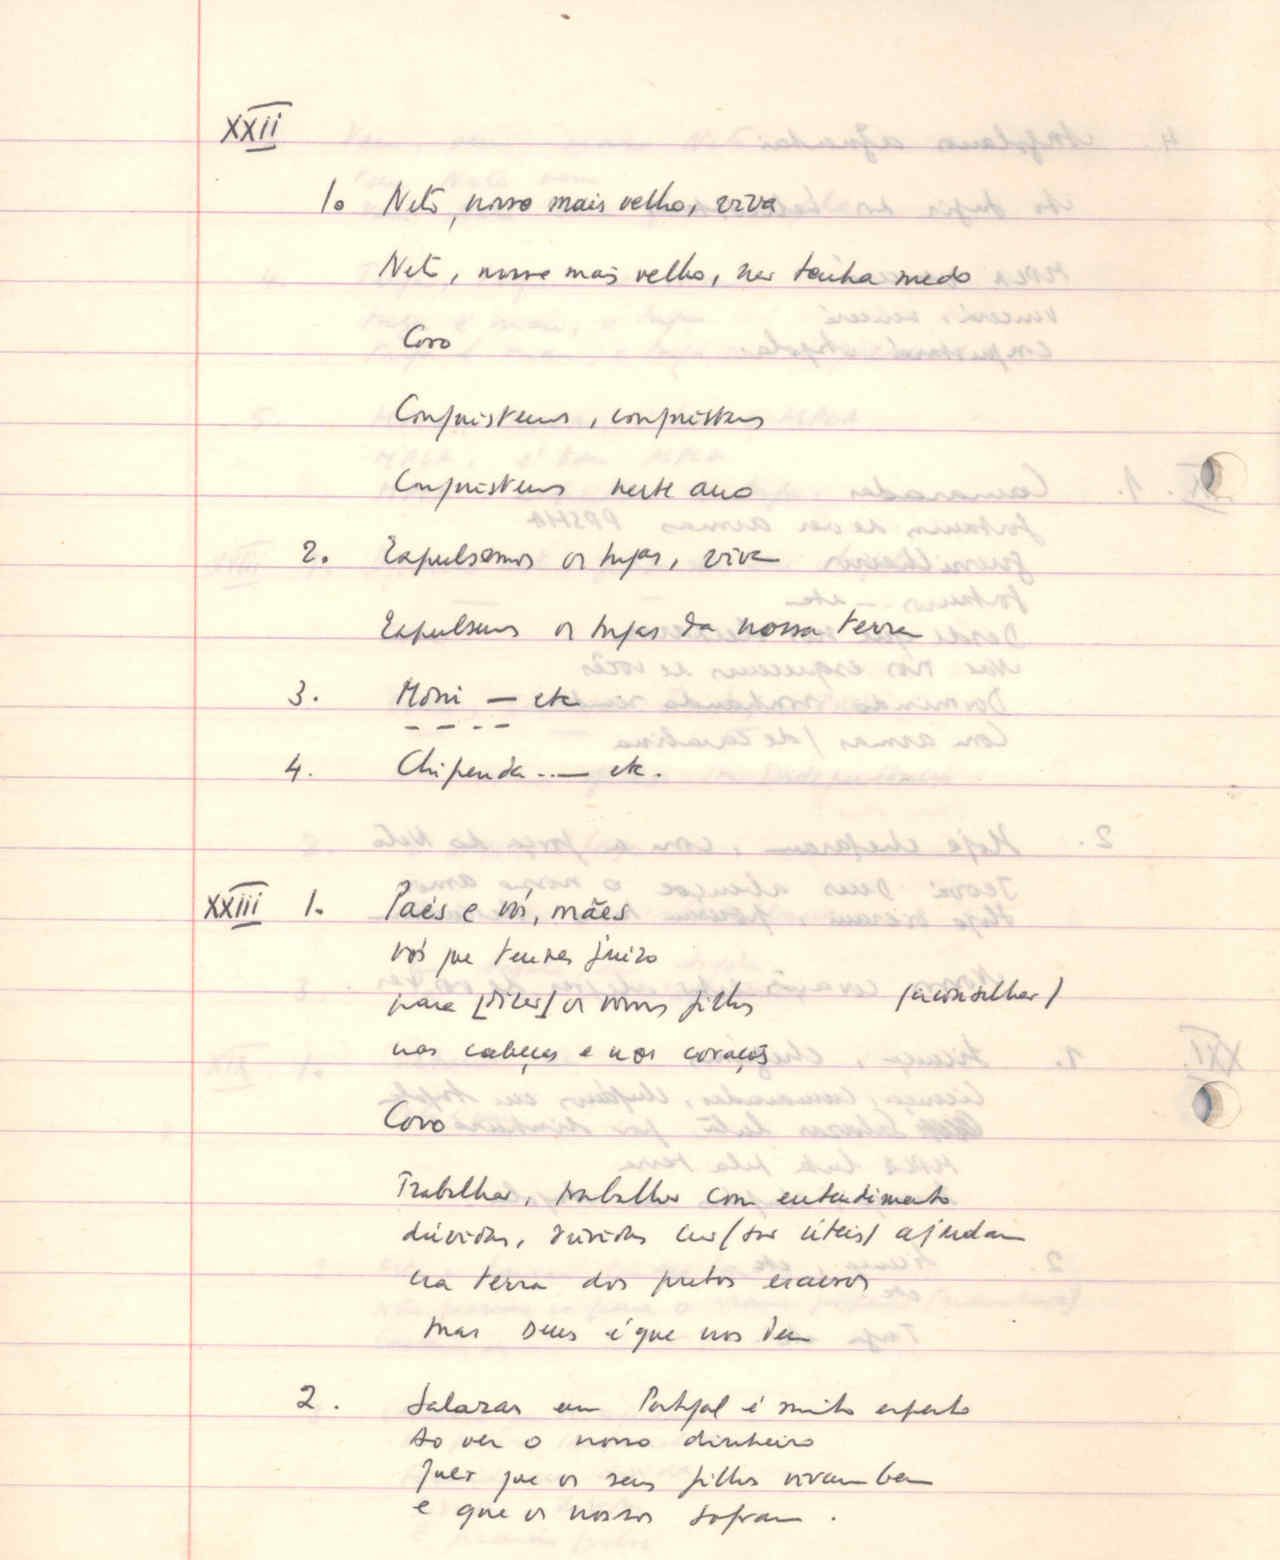 XXII
1. Neto, nosso mais velho, viva
Neto, nosso mais velho, não tenha medo
Coro
Conquistemos, conquistemos
Conquistemos neste ano
2. Expulsemos os tugas, viva
Expulsemos os tugas da nossa terra
3. Móni — etc
- - - -
4. Chipenda ..— etc.
XXIII 1. Paes e vós, mães
vós que tendes juizo
para [dizer] os vossos filhos (aconselhar)
nas cabeças e nos corações
Coro
Trabalhar, trabalhar com entendimento
dúvidas, dúvidas (ser úteis) ajudam
na terra dos pretos
mas Deus é que nos deu
2. Salazar em Portugal é muito esperto
Ao ver o nosso dinheiro
quer que os seus filhos vivam bem
e que os nossos sofram.